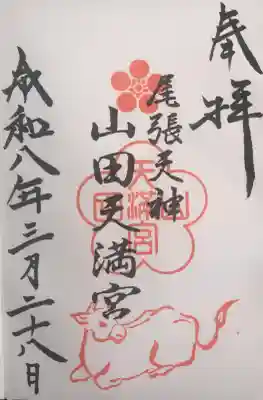 奉拝
尾張天神
山田天満宮
令和八年三月二十八日
山田天満宮